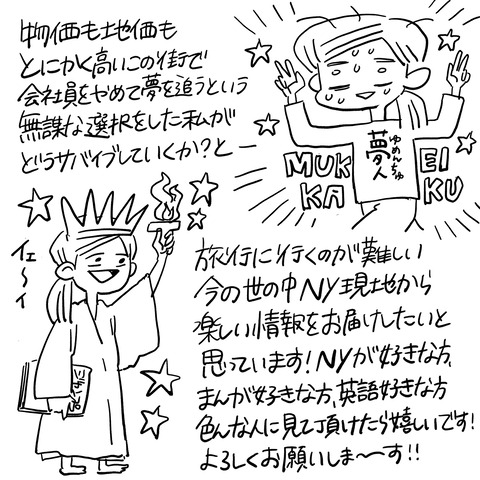 物価も地価も
とにかく高いこの街で
会社員をやめて夢を追うという
無謀な選択をした私が
どうサバイブしていくか?と—
夢人
ゆめんちゅ
MUK
KA
EI
KU
イェ〜イ
旅行に行くのが難しい
今の世の中NY現地から
楽しい情報をお届けしたいと
思っています!NYが好きな方、
まんが好きな方、英語好きな方
色んな人に見て頂けたら嬉しいです!
よろしくお願いしま〜〜す!!